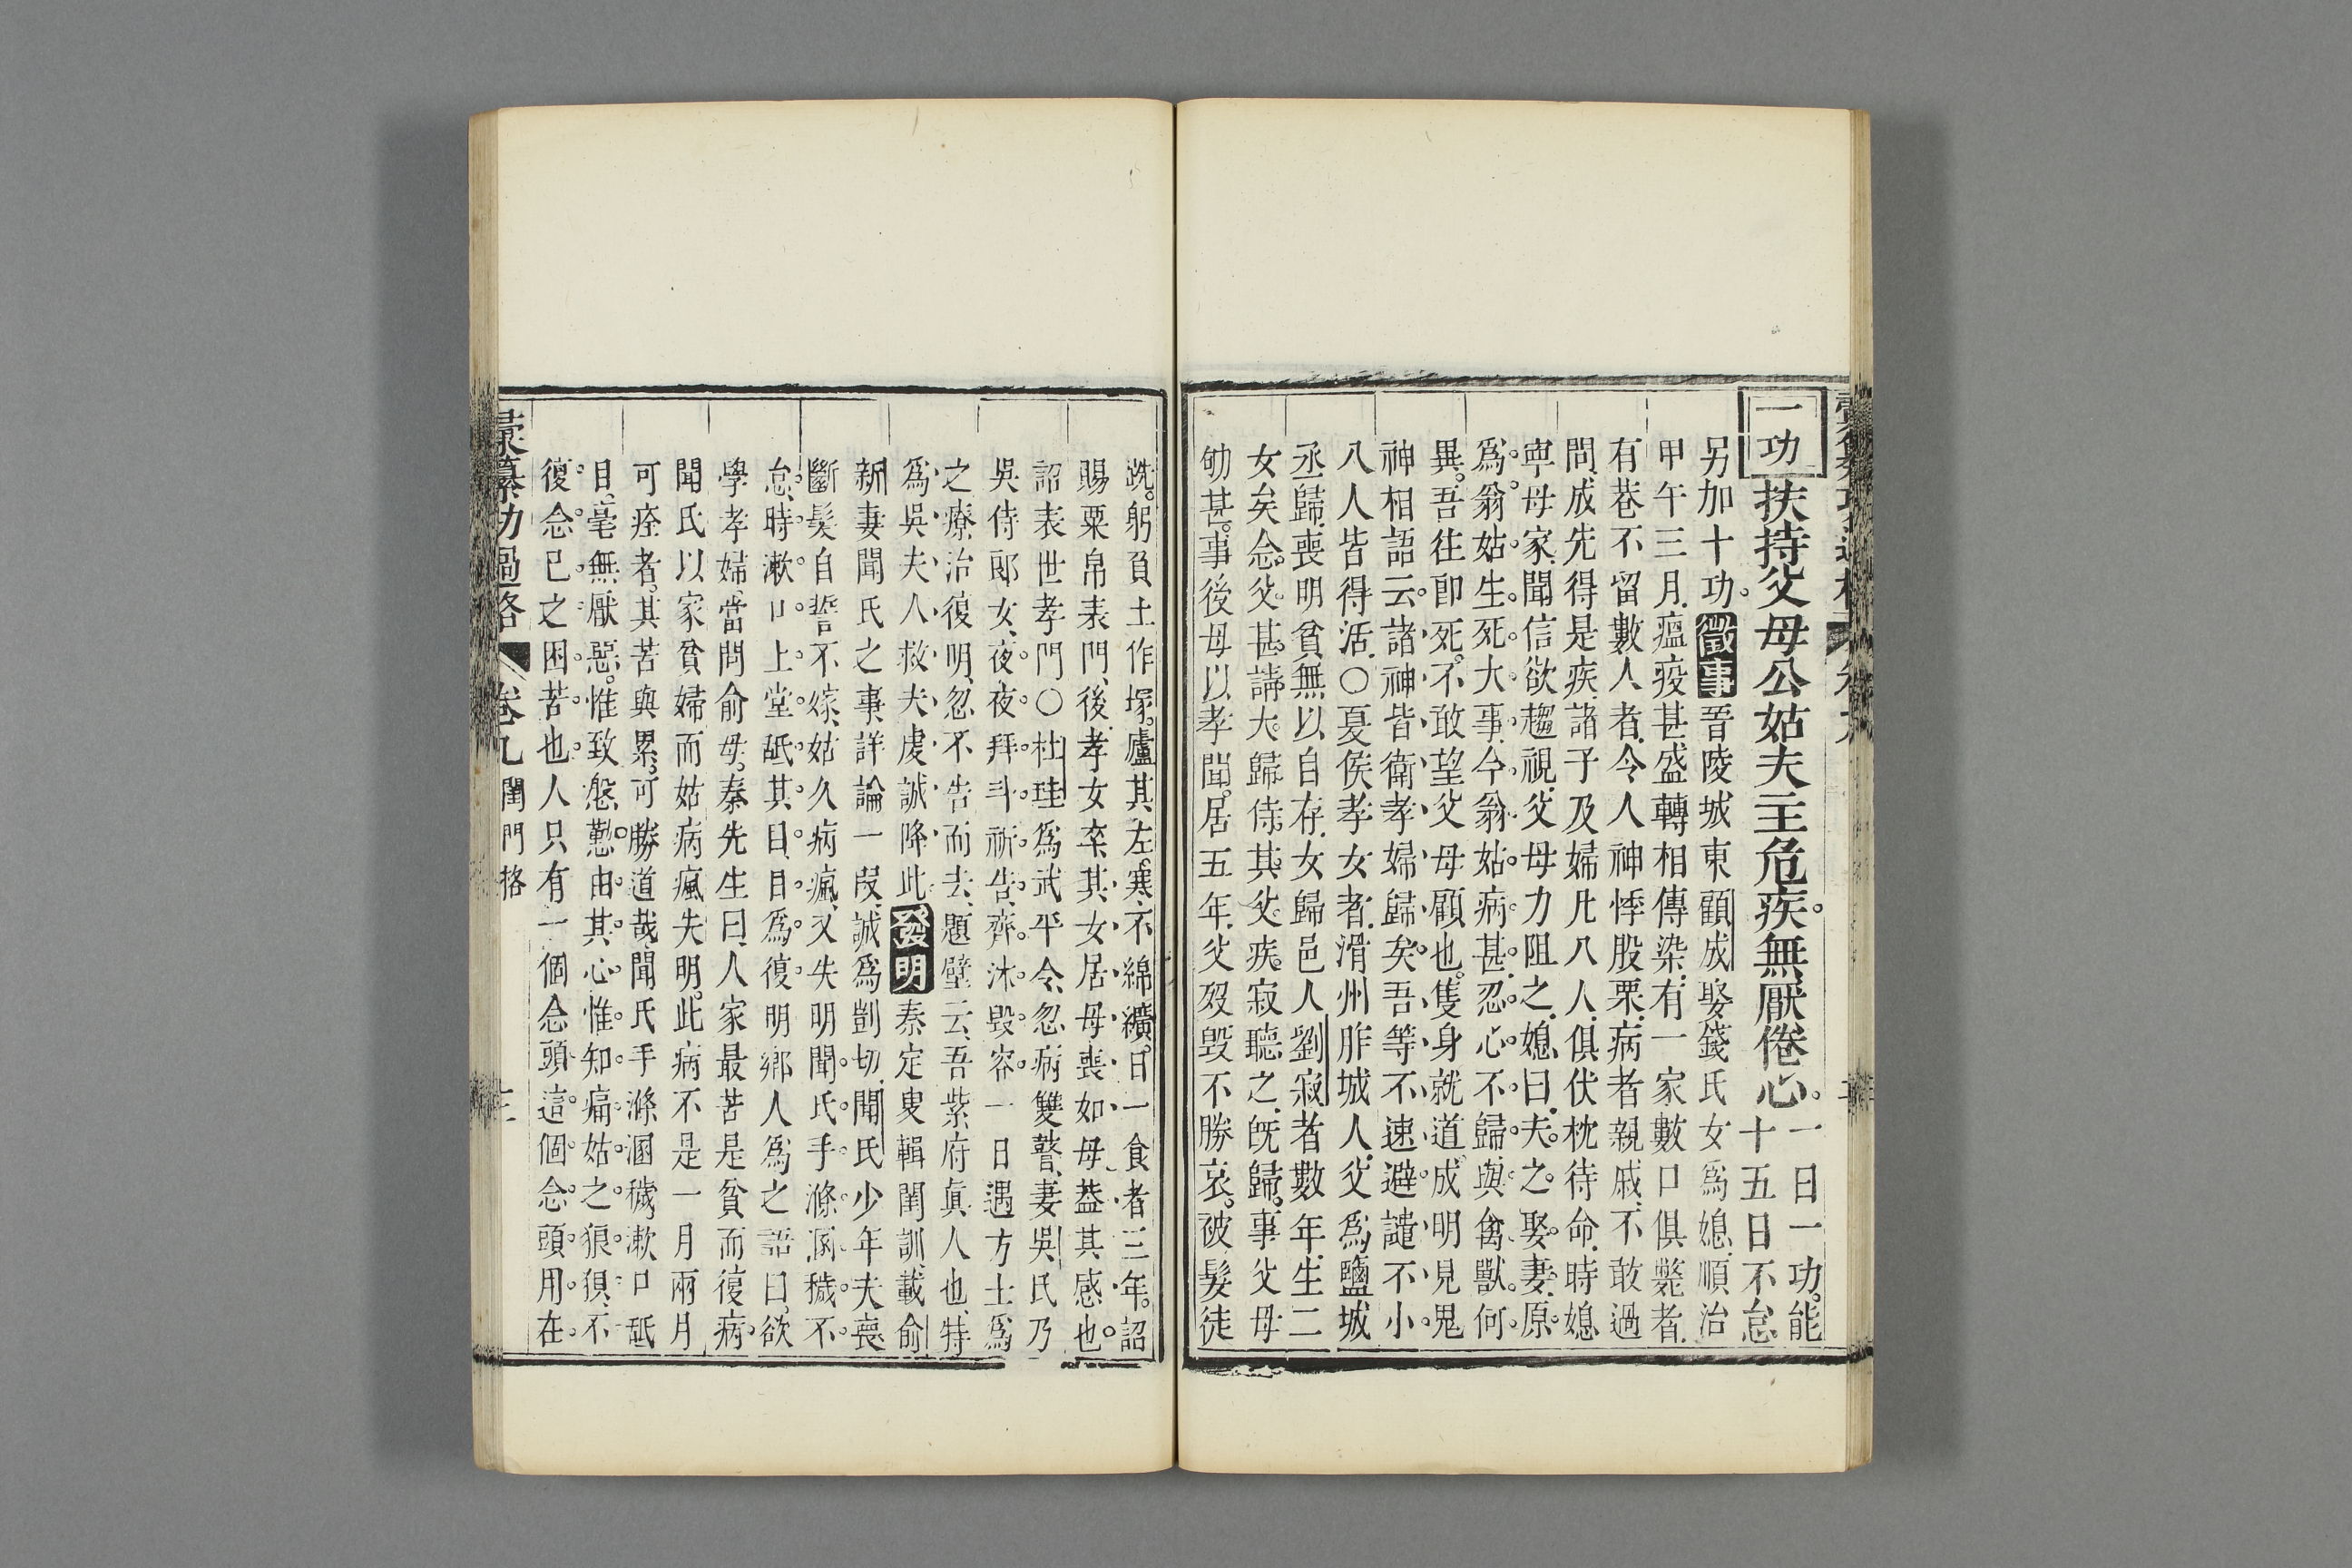 一功
扶持父母公姑夫主危疾。無厭倦心。一日一功。能
十五日不怠
另加十功。徵事晉陵城東顧成娶錢氏女爲媳順治
甲午三月瘟疫甚盛轉相傳染有一家數口俱斃者
有巷不留數人者令人神悸股栗病者親戚不敢過
問成先得是疾諸子及婦凡八人俱伏枕待命時媳
寧母家聞信欲趨視父母力阻之媳曰夫之娶妻原
爲。翁姑。生。死大事今翁姑病甚忍心不歸與禽獸何
異。吾往即死。不敢望父母顧也。隻身就道成明見鬼
神相語云諸神皆衛孝婦歸矣吾等不速避譴不小
八人皆得活〇夏侯孝女者滑州胙城人父爲鹽城
丞歸喪明貧無以自存女歸邑人劉寂者數年生二
女矣念父甚請夫歸侍其父疾寂聽之既歸。事父母
劬甚。事後母以孝聞。居五年父歿毀不勝哀。被髮徒
跣。躬負土作塚。廬其左寒不綿纊。日一食者三年。詔
賜粟帛表門後孝女卒其女居母喪如母葢其感也。
詔表世孝門〇杜珪爲武平令忽病雙瞽妻吳氏乃
吳侍郎女夜夜拜斗祈告齊沐毀容一日遇方士爲
之療治復明忽不告而去題壁云吾紫府眞人也特
爲吳夫人救夫虔誠降此發明秦定叟輯閨訓載俞
新妻聞氏之事詳論一段誠爲剴切聞氏少年夫喪
斷髮自誓不嫁姑久病瘋又失明聞氏手滌溷穢不
怠時漱口上堂舐其目目爲復明鄉人爲之語曰欲
學孝婦當問俞母。秦先生曰人家最苦是貧而復病
聞氏以家貧婦而姑病瘋失明。此病不是一月兩月
可痊者其苦與累可勝道哉聞氏手滌溷穢漱口舐
目。毫無厭惡。惟致慇懃由其心惟知痛姑之狼狽不
復念己之困苦也人只有一個念頭這個念頭用在
彙纂功過格
卷九
閨門格